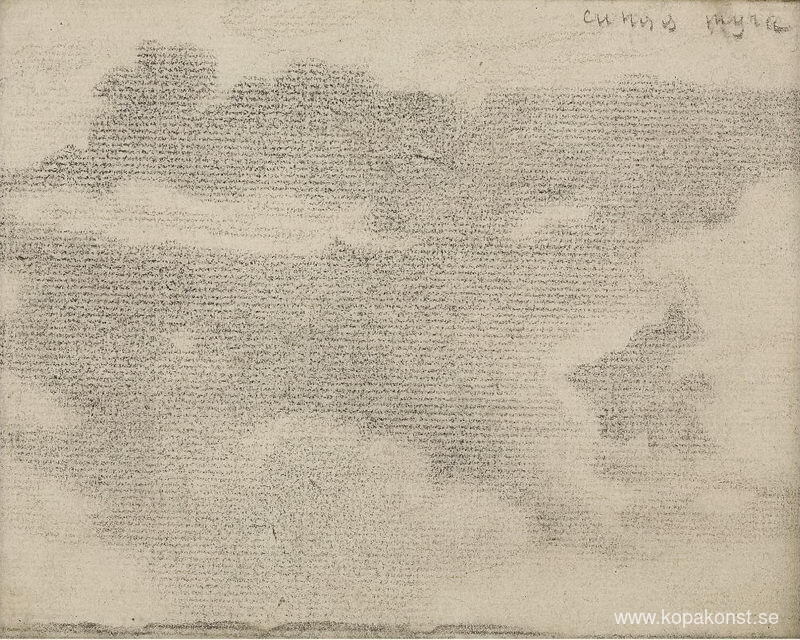 cunos myra
www.kopakonst.se